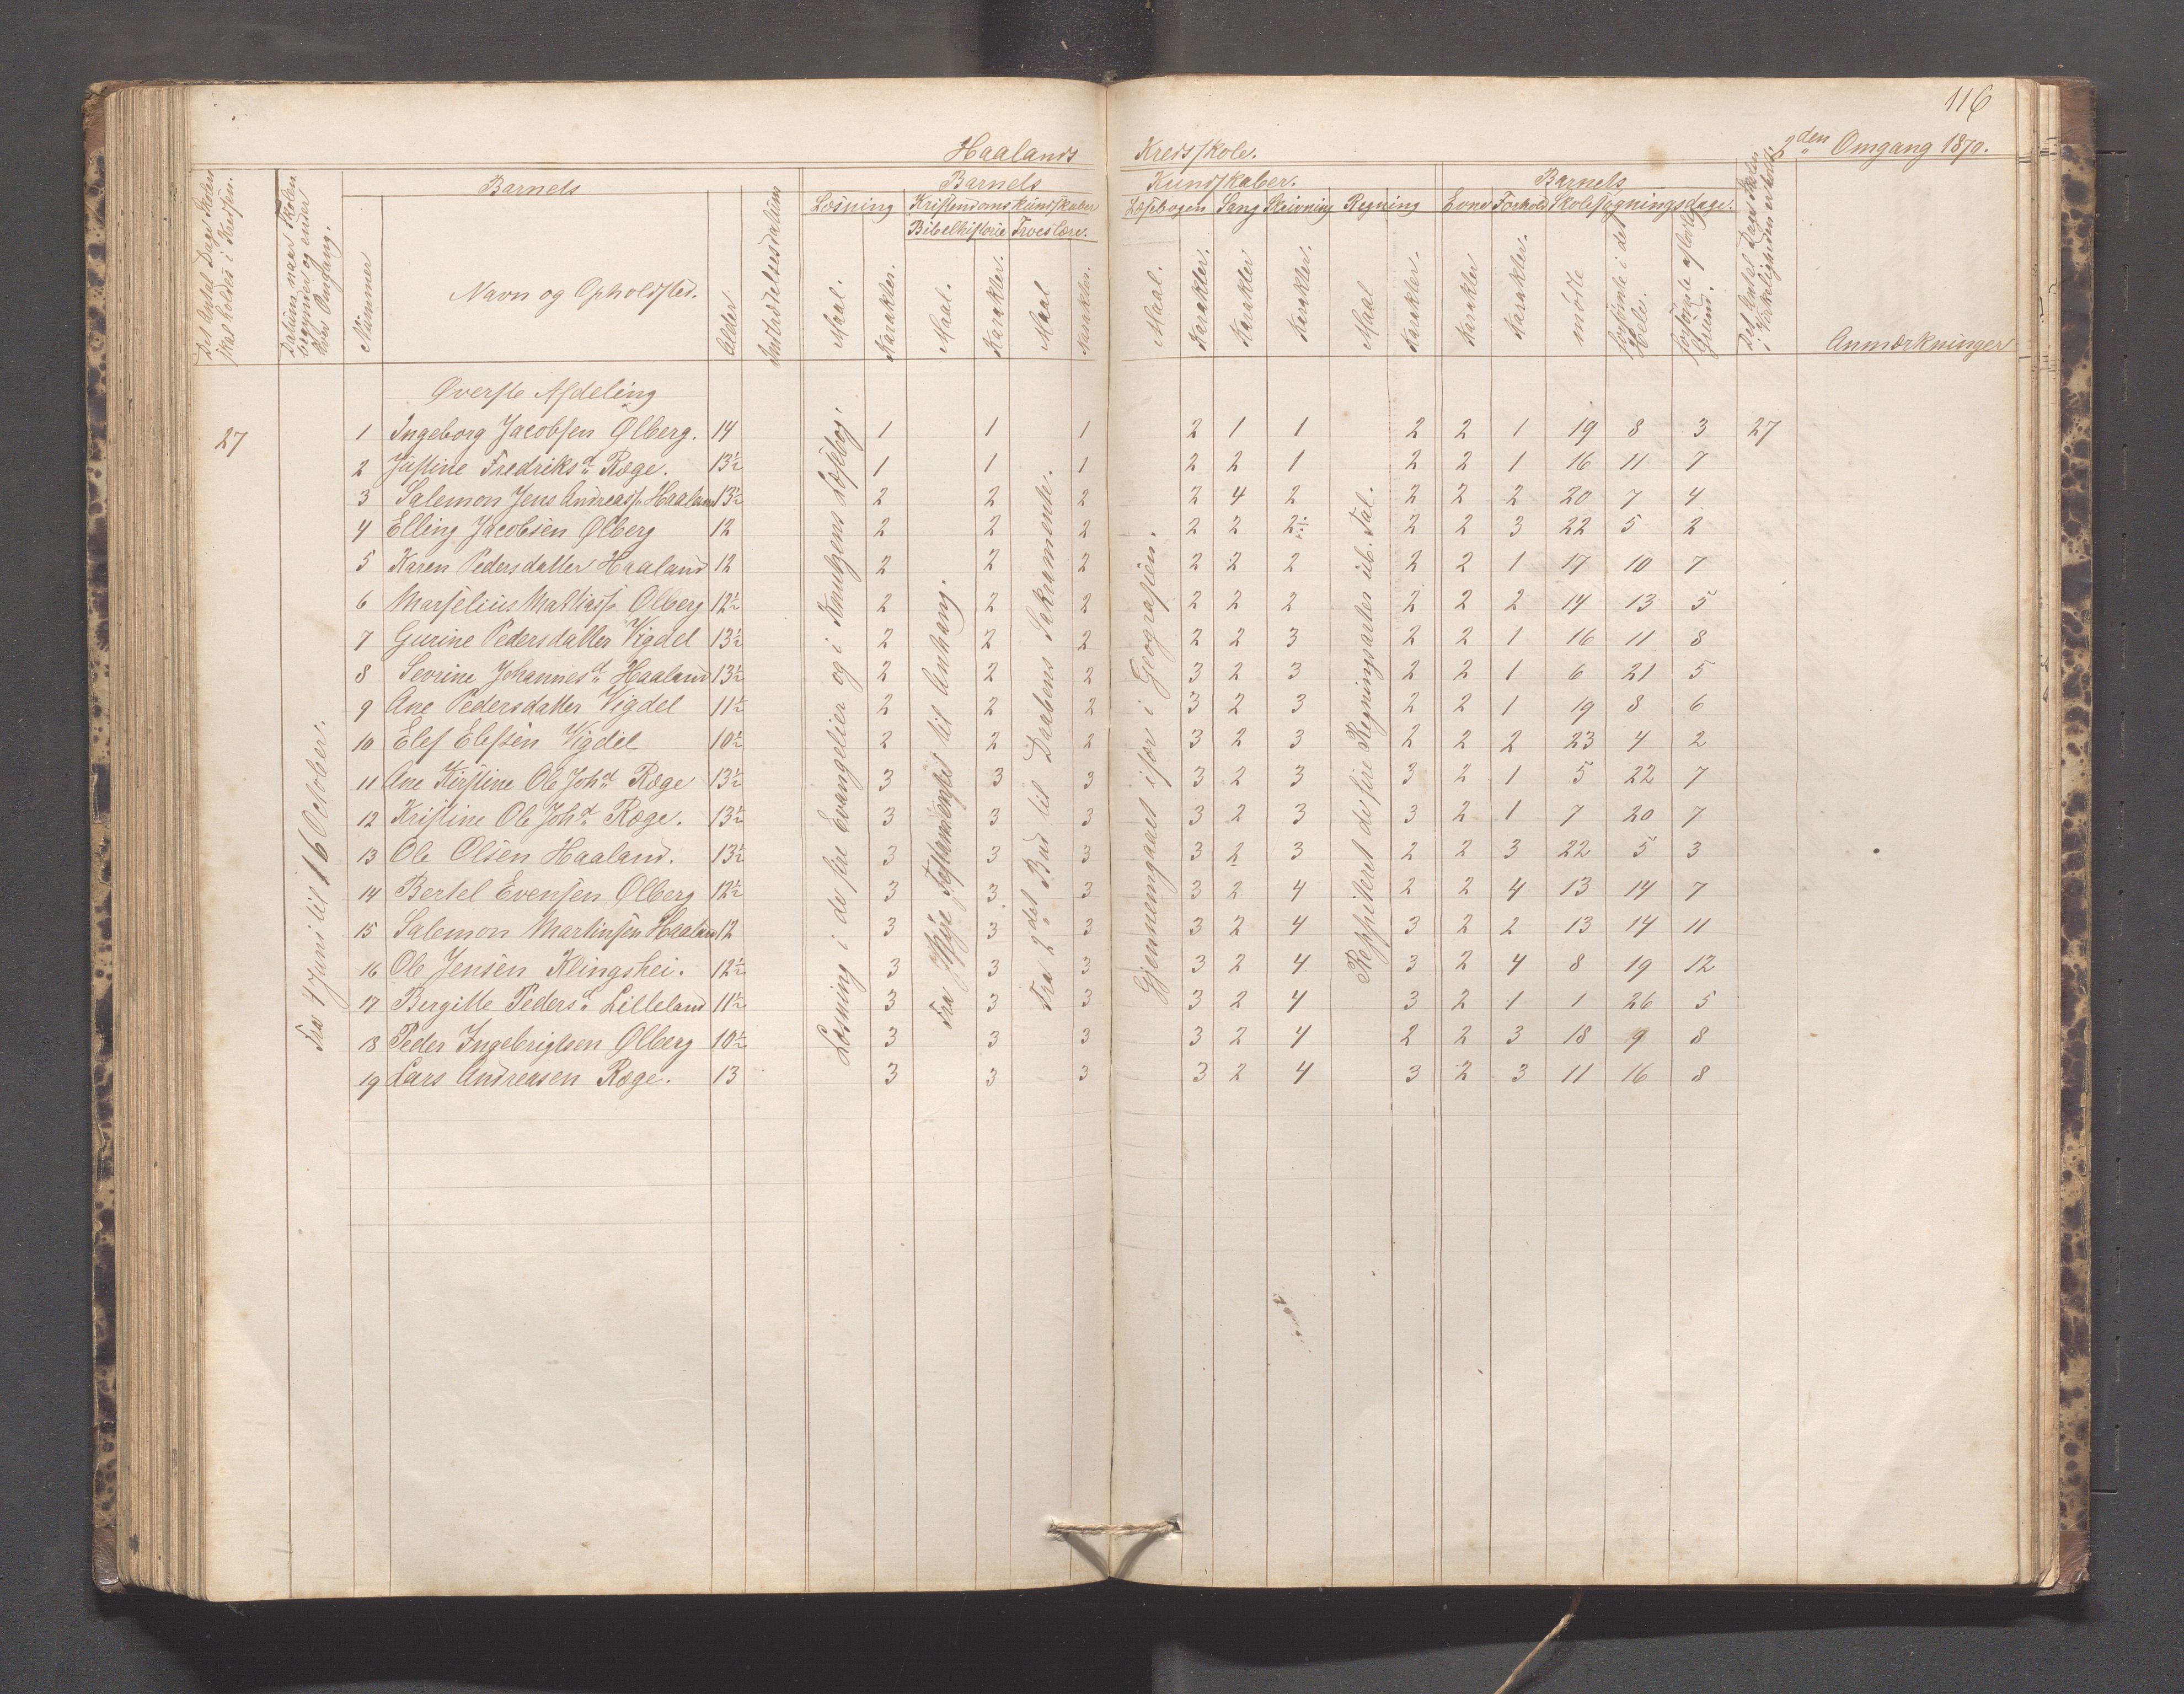 116
Haalands Kredsskole.
2den Omgang 1870.
Det Antal Dage Skolen skal holdes i Kredsen.
Datum naar Skolen begynder og ender hver Omgang.
Barnets
Nummer
Navn og Opholdsted.
Alder
Indtrædelsesdatum
Barnets Kundskaber.
Læsning
Maal.
Karakter.
Kristendomskundskaber
Bibelhistorie
Maal.
Karakter.
Troeslære.
Maal
Karakter.
Læsebogen
Maal.
Karakter.
Sang
Karakter
Skrivning
Karakter.
Regning
Maal
Karakter.
Barnets
Evne
Karakter
Forhold
Karakter.
Skolesøgningsdage.
mødte
forsømte i det Hele.
forsømte af lovlig Grund.
Det Antal Dage Skolen i Virkeligheden er holdt.
Anmærkninger
Øverste Afdeling
27
Fra 4 Juni til 16 October.
Læsning i de fire Evangelier og i Jensens Læsebog.
Fra Nye Testamentet til Anhang.
Fra 2det Bud til Daabens Sakramente.
Gjennemgaaet især i Geografien.
Reppiteret de fire Regningsarter ub. Tal.
1 Ingeborg Jacobsen Ølberg. 14 1 1 1 2 1 1 2 2 1 19 8 3 27
2 Justine Fredriksd. Ræge. 13½ 1 1 1 2 2 1 2 2 1 16 11 7
3 Salemon Jens Andreass. Haaland 13½ 2 2 2 2 4 2 2 2 2 20 7 4
4 Elling Jacobsen Ølberg 12 2 2 2 2 2 2÷ 2 2 3 22 5 2
5 Karen Pedersdatter Haaland 12 2 2 2 2 2 2 2 2 1 17 10 7
6 Marselius Mathiass. Ølberg 12½ 2 2 2 2 2 2 2 2 2 14 13 5
7 Gurine Pedersdatter Vigdel 13½ 2 2 2 2 2 3 2 2 1 16 11 8
8 Sevrine Johannesd. Haaland 13½ 2 2 2 3 2 3 2 2 1 6 21 5
9 Ane Pedersdatter Vigdel 11½ 2 2 2 3 2 3 2 2 1 19 8 6
10 Elef Elefsen Vigdel 10½ 2 2 2 3 2 3 2 2 2 23 4 2
11 Ane Kirstine Ole Johd. Ræge 13½ 3 3 3 3 2 3 3 2 1 5 22 7
12 Kristine Ole Johd. Ræge. 13½ 3 3 3 3 2 3 3 2 1 7 20 7
13 Ole Olsen Haaland. 13½ 3 3 3 3 2 3 2 2 3 22 5 3
14 Bertel Evensen Ølberg 12½ 3 3. 3 3 2 4 2 2 4 13 14 7
15 Salemon Martinsen Haaland 12 3 3 3 3 2 4 3 2 2 13 14 11
16 Ole Jensen Klingshei. 12½ 3 3 3 3 2 4 3 2 4 8 19 12
17 Bergitte Pedersd. Lilleland 11½ 3 3 3 3 2 4 3 2 1 1 26 5
18 Peder Ingebrigtsen Ølberg 10½ 3 3 3 3 2 4 2 2 3 18 9 8
19 Lars Andreasen Ræge. 13 3 3 3 3 2 4 3 2 3 11 16 8